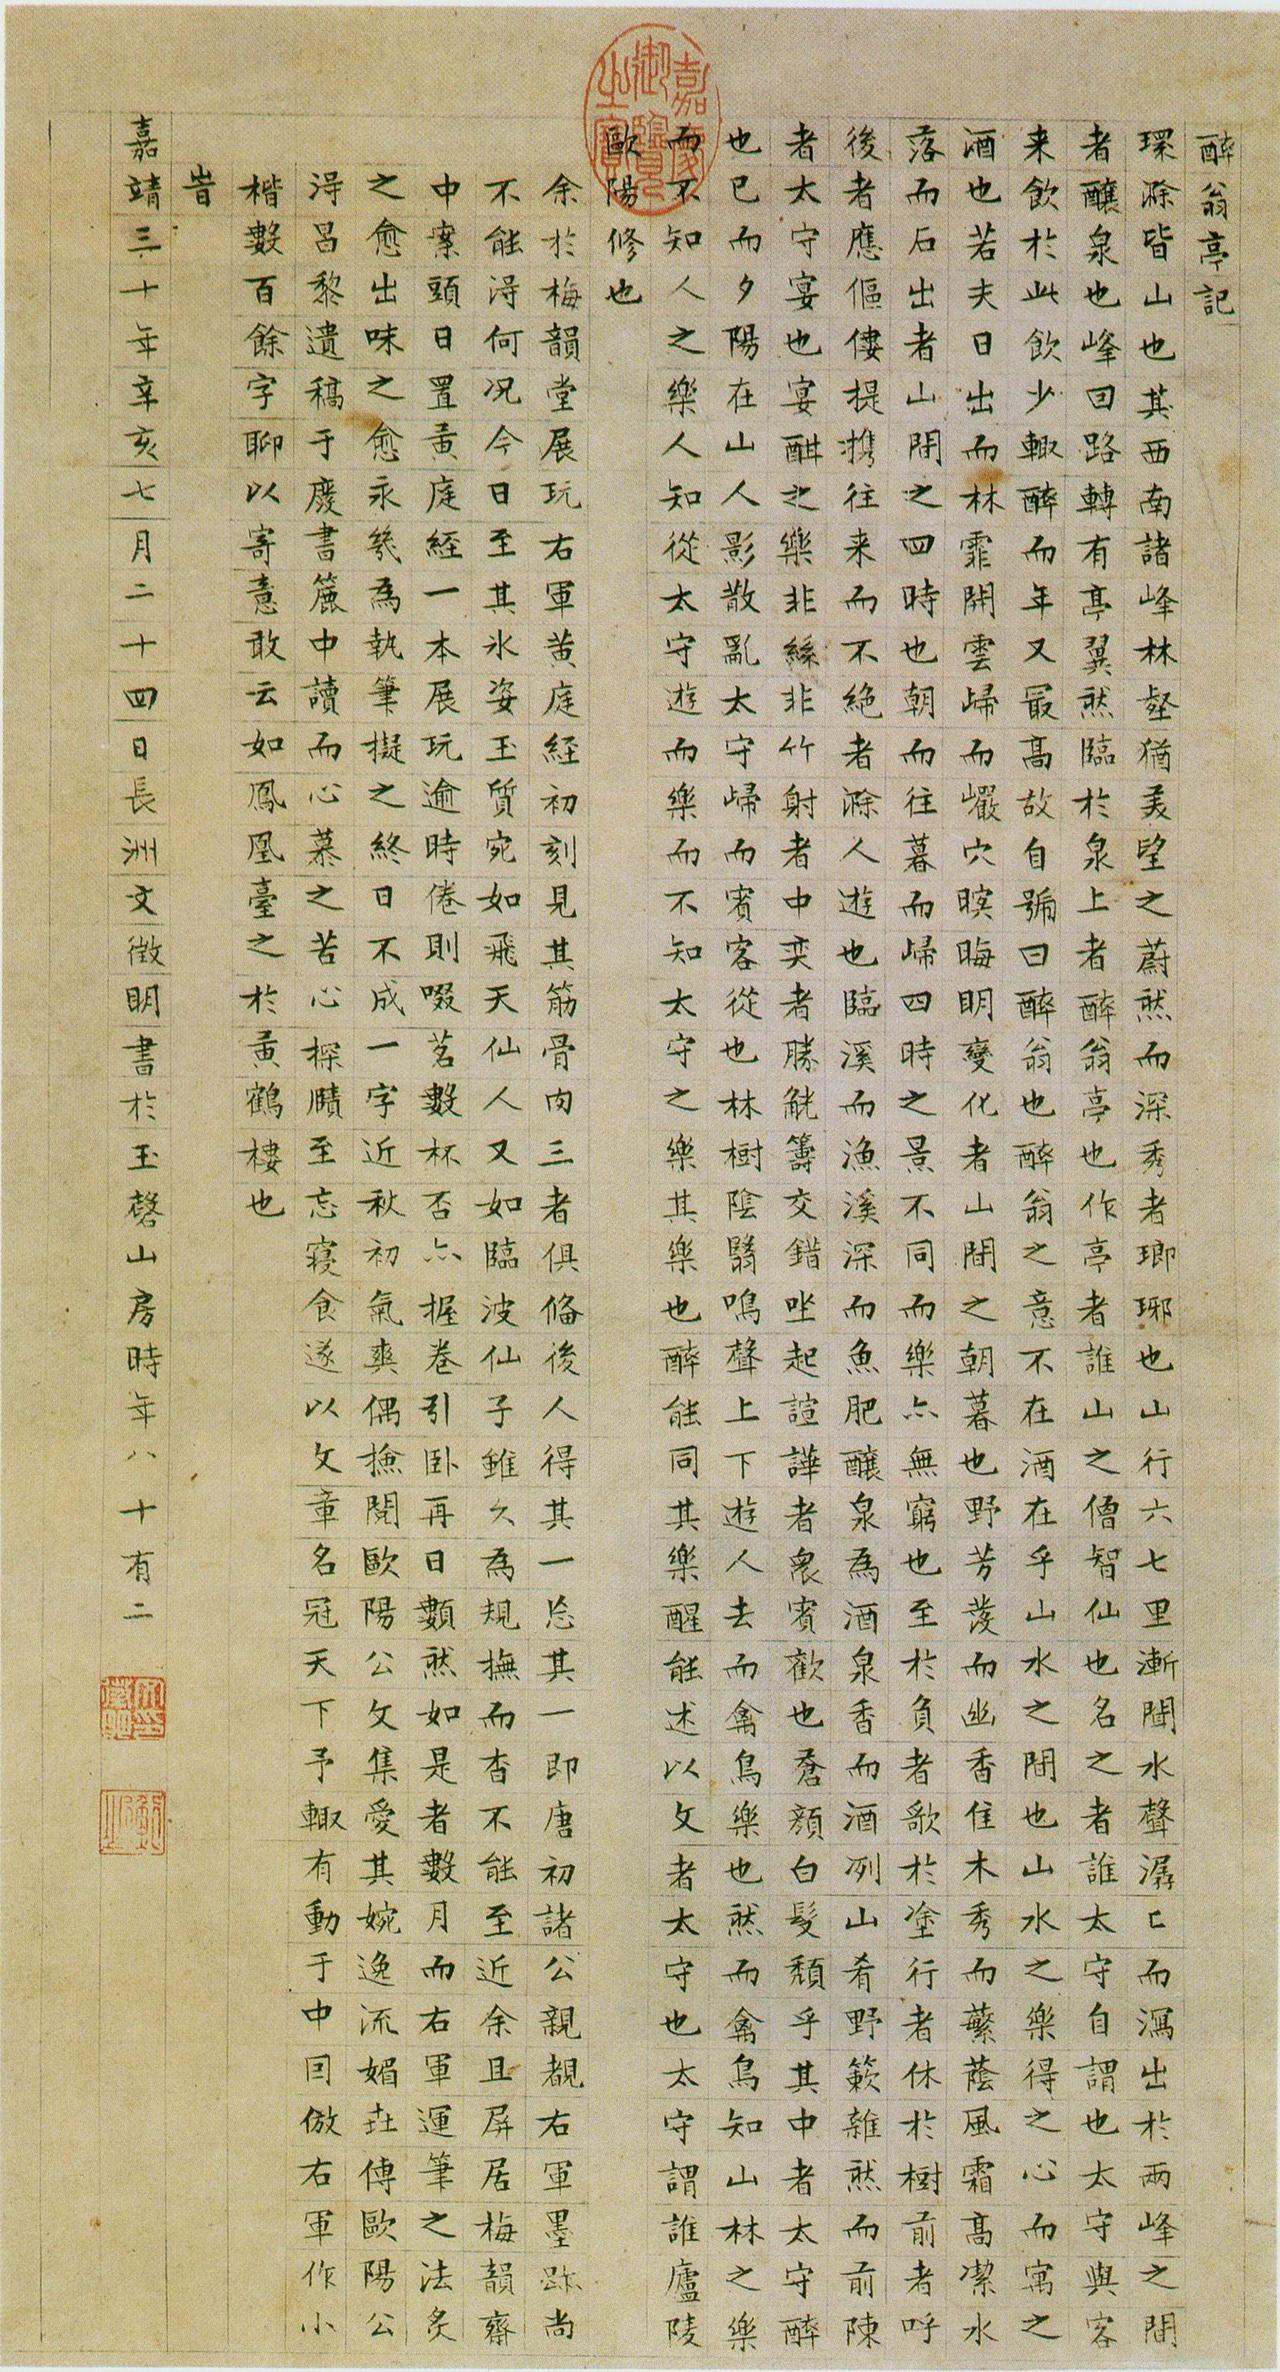 醉翁亭記
環滁皆山也其西南諸峰林壑猶美望之蔚然而深秀者瑯琊也山行六七里漸聞水聲潺匕而瀉出於兩峰之間
者釀泉也峰回路轉有亭翼然臨於泉上者醉翁亭也作亭者誰山之僧智仙也名之者誰太守自謂也太守與客
来飲於此飲少輙醉而年又最高故自號曰醉翁也醉翁之意不在酒在乎山水之間也山水之樂得之心而寓之
酒也若夫日出而林霏開雲歸而巖穴暝晦明變化者山間之朝暮也野芳發而幽香佳木秀而蘩蔭風霜高潔水
落而石出者山間之四時也朝而往暮而歸四時之景不同而樂亦無窮也至於負者歌於塗行者休於樹前者呼
後者應傴僂提攜往来而不絕者滁人遊也臨溪而漁溪深而魚肥釀泉為酒泉香而酒冽山肴野蔌雜然而前陳
者太守宴也宴酣之樂非絲非竹射者中奕者勝觥籌交錯坐起諠譁者衆賓歡也蒼顏白髮頹乎其中者太守醉
也已而夕陽在山人影散亂太守歸而賓客從也林樹陰翳鳴聲上下遊人去而禽鳥樂也然而禽鳥知山林之樂
而不知人之樂人知從太守遊而樂而不知太守之樂其樂也醉能同其樂醒能述以文者太守也太守謂誰廬陵
歐陽修也
余於梅韻堂展玩右軍黃庭經初刻見其筋骨肉三者俱俻後人得其一忘其一即唐初諸公親覩右軍墨跡尚
不能淂何况今日至其氷姿玉質宛如飛天仙人又如臨波仙子雖久為規撫而杳不能至近余且屏居梅韻齋
中案頭日置黃庭經一本展玩逾時倦則啜茗數杯否亦握卷引臥再日數然如是者數月而右軍運筆之法炙
之愈出味之愈永幾為執筆擬之終日不成一字近秋初氣爽偶撿閱歐陽公文集愛其婉逸流媚盐傳歐陽公
淂昌黎遺稿于廢書簏中讀而心慕之苦心探賾至忘寢食遂以文章名冠天下予輙有動于中囙倣右軍作小
楷數百餘字聊以寄意敢云如鳳凰臺之於黃鶴樓也
旹
嘉靖三十年辛亥七月二十四日長洲文徵明書於玉磬山房時年八十有二
嘉慶御覽之寶